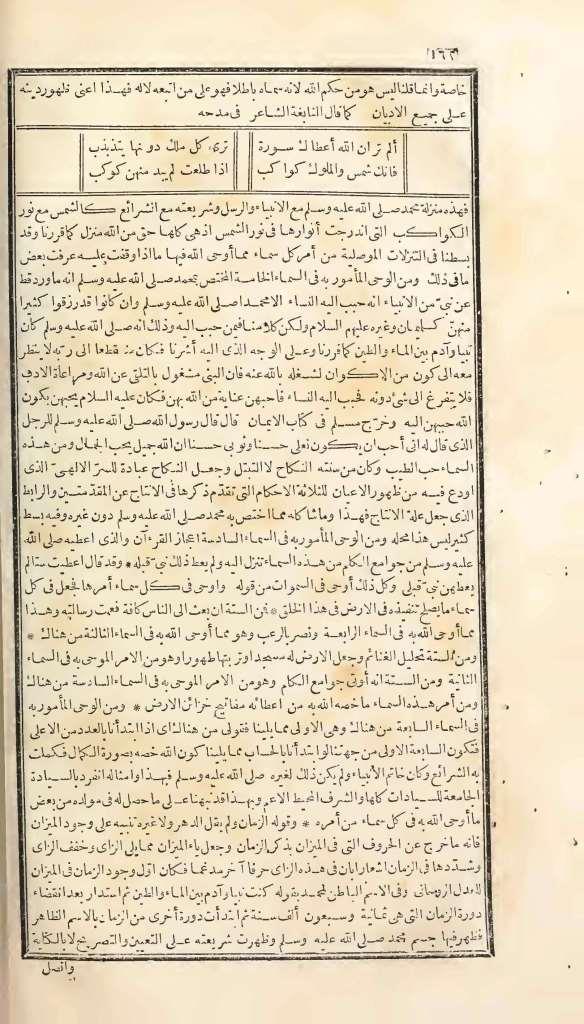 ١٦٢
خاصة وانما قلنا ليس هو من حكم الله لانه سماه باطلا فهو على من اتبعه لا له فهذا أعنى ظهور دينه
على جميع الاديان كما قال النابغة الشاعر فى مدحه
ألم تر ان الله أعطاك سورة ترى كل ملك دونها يتذبذب
فانك شمس والملوك كواكب اذا طلعت لم يبد منهن كوكب
فهذه منزلة محمد صلى الله عليه وسلم مع الانبياء والرسل وشريعته مع الشرائع كالشمس مع نور
الكواكب التى اندرجت أنوارها فى نور الشمس اذ هى كلها حق من الله منزل كما قررنا وقد
بسطنا فى التنزلات الموصلية من أمر كل سماء مما أوحى الله فيها ما اذا وقفت عليه عرفت بعض
ما فى ذلك ومن الوحى المأمور به فى السماء الخامسة المختص بمحمد صلى الله عليه وسلم انه ما ورد قط
عن نبى من الانبياء انه حبب اليه النساء الا محمد صلى الله عليه وسلم وان كانوا قد رزقوا كثيرا
منهن كسليمان وغيره عليهم السلام ولكن كلامنا فيمن حبب اليه وذلك انه صلى الله عليه وسلم كان
نبيا وآدم بين الماء والطين كما قررنا وعلى الوجه الذى اليه أشرنا فكان منقطعا الى ربه لا ينظر
معه الى كون من الاكوان لشغله بالله عنه فان النبى مشغول بالتلقى عن الله ومراعاة الادب
فلا يتفرغ الى شئ دونه فحبب اليه النساء فأحبهن عناية من الله بهن فكان عليه السلام يحبهن بكون
الله حببهن اليه وخرج مسلم فى كتاب الايمان قال قال رسول الله صلى الله عليه وسلم للرجل
الذى قال له انى أحب ان يكون نعلى حسنا وثوبى حسنا ان الله جميل يحب الجمال ومن هذه
السماء حب الطيب وكان من سنته النكاح لا التبتل وجعل النكاح عبادة للسر الالهى الذى
اودع فيه من ظهور الاعيان للثلاثة الاحكام التى تقدم ذكرها فى الانتاج عن المقدمتين والرابط
الذى جعل علة الانتاج فهذا وما شاكله مما اختص به محمد صلى الله عليه وسلم دون غيره وفيه بسط
كثير ليس هذا محله ومن الوحى المأمور به فى السماء السادسة اعجاز القرءآن والذى اعطيه صلى الله
عليه وسلم من جوامع الكلم من هذه السماء تنزل اليه ولم يعط ذلك نبى قبله * وقد قال اعطيت ستا لم
يعطهن نبى قبلى وكل ذلك أوحى فى السموات من قوله وأوحى فى كل سماء أمرها فجعل فى كل
سماء ما يصلح تنفيذه فى الارض فى هذا الخلق * فمن الستة ان بعث الى الناس كافة فعمت رسالته وهذا
مما أوحى الله به فى السماء الرابعة ونصر بالرعب وهو مما أوحى الله به فى السماء الثالثة من هناك *
ومن الستة تحليل الغنائم وجعل الارض له مسجدا وتربتها طهورا وهو من الامر الموحى به فى السماء
الثانية ومن الستة انه أوتى جوامع الكلم وهو من الامر الموحى به فى السماء السادسة من هناك
ومن أمر هذه السماء ما خصه الله به من اعطائه مفاتيح خزائن الارض * ومن الوحى المأمور به
فى السماء السابعة من هناك وهى الاولى مما يلينا فتولى من هناك اى اذا ابتدأنا بالعدد من الاعلى
فتكون السابعة الاولى من جهتنا لو ابتدأنا بالحساب مما يلينا كون الله خصه بصورة الكمال فكملت
به الشرائع وكان خاتم الأنبياء ولم يكن ذلك لغيره صلى الله عليه وسلم فبهذا وامثاله انفرد بالسيادة
الجامعة للسيادات كلها والشرف المحيط الاعم وبهذا قد نبهنا على ما حصل له فى مولده من بعض
ما أوحى الله به فى كل سماء من أمره * وقوله الزمان ولم يقل الدهر ولا غيره تنبيه على وجود الميزان
فانه ما خرج عن الحروف التى فى الميزان بذكر الزمان وجعل ياء الميزان مما يلى الزاى وخفف الزاى
وشددها فى الزمان اشعارا بان فى هذه الزاى حرفا آخر مدغما فكان اوّل وجود الزمان فى الميزان
للعدل الروحانى وفى الاسم الباطن لمحمد بقوله كنت نبيا وآدم بين الماء والطين ثم استدار بعد انقضاء
دورة الزمان التى هى ثمانية وسبعون ألف سنة ثم ابتدأت دورة أخرى من الزمان بالاسم الظاهر
فظهر فيها جسم محمد صلى الله عليه وسلم وظهرت شريعته على التعيين والتصريح لا بالكناية
واتصل